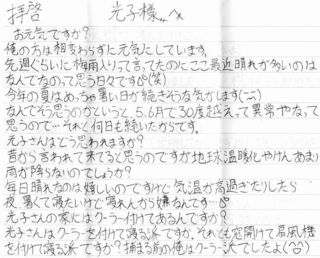 拝啓 光子様へ
お元気ですか?
俺の方は相変わらずに元気にしています。
先週ぐらいに梅雨入りって言ってたのにここ最近晴れが多いのは
なんでなのって思う日々です(笑)
今年の夏はめっちゃ暑い日が続きそうな気がします(^^;)
なんでそう思うのかというと、5.6月で30度越えって異常やなって
思うので…それと何日も続いたからです。
光子さんはどう思われますか?
昔から言われて来てると思うのですが地球温暖化やけんあまり
雨が降らないのでしょうか?
毎日晴れなのは嬉しいのですけど気温が高過ぎたりしたら
夜、暑くて寝たいけど寝れんから嫌なんです…
光子さんの家にはクーラー付けてあるんですか?
光子さんはクーラーを付けて寝る派ですか、それとも窓開けて扇風機
を付けて寝る派ですか?捕まる前の俺はクーラー派でしたよ(^^)